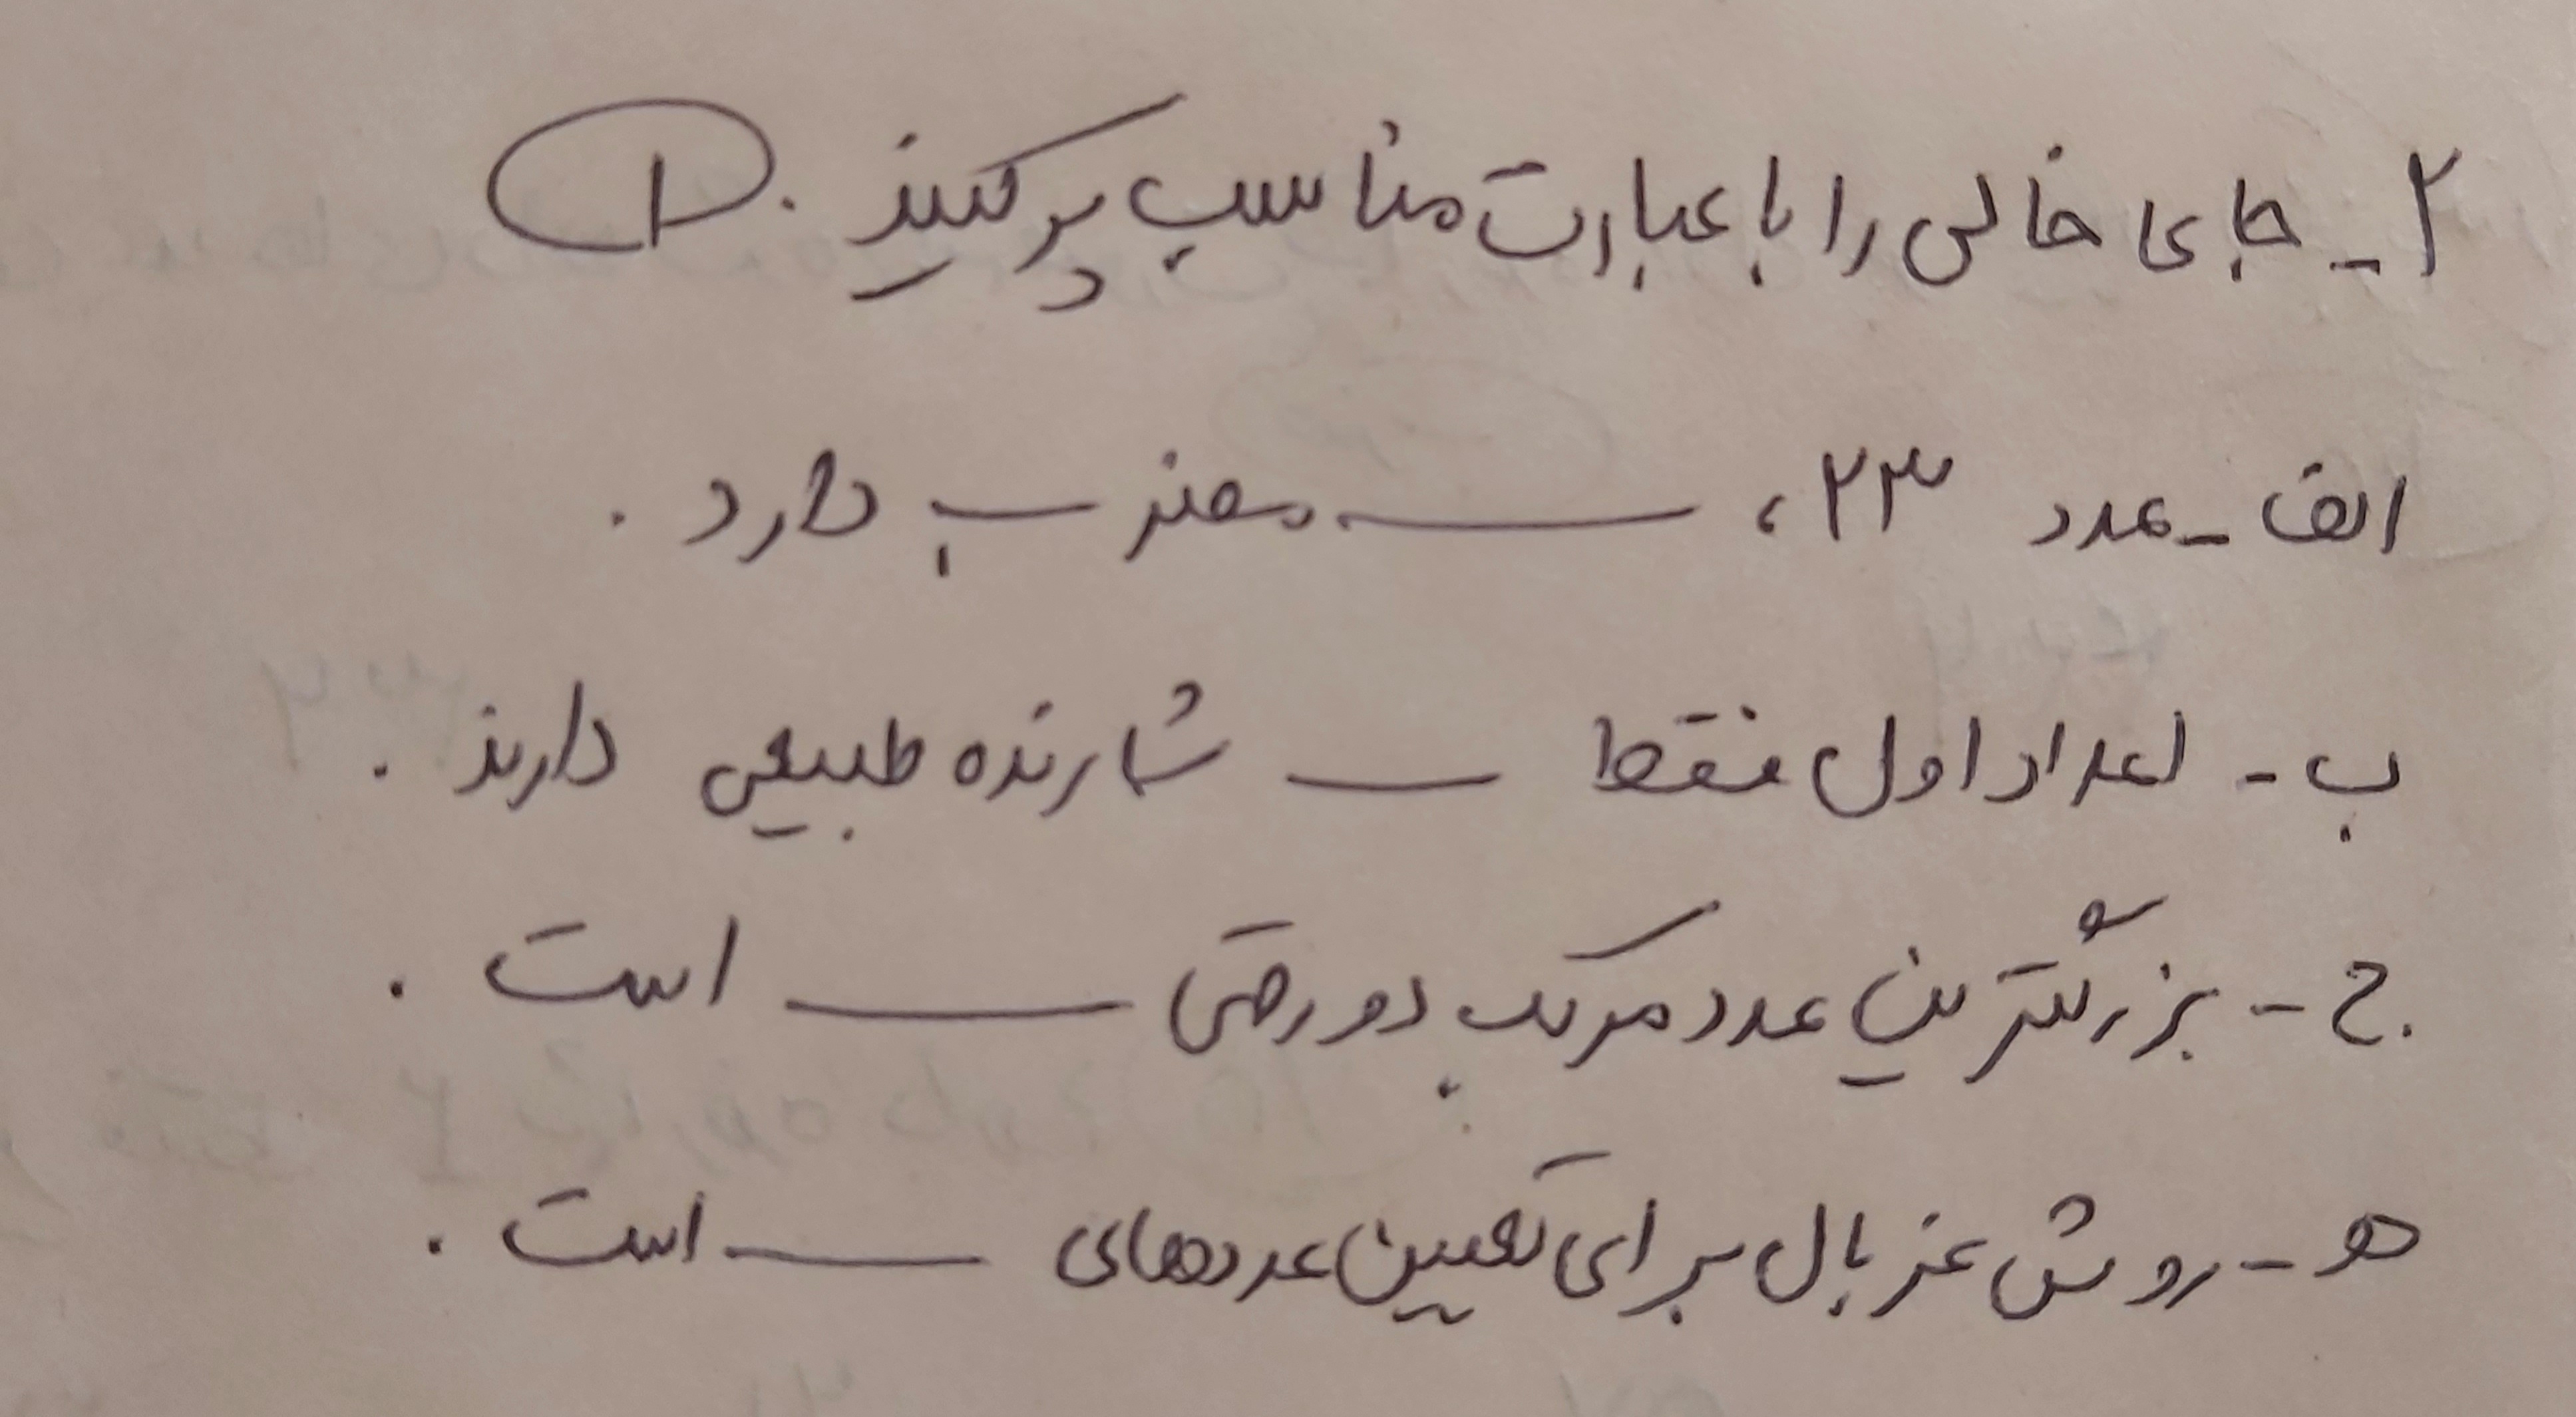 ۲- جای خالی را با عبارت مناسب پر کنید. ①
الف- عدد ۲۳، ــــــ مضرب دارد.
ب- اعداد اول فقط ــــــ شمارنده طبیعی دارند.
ج- بزرگترین عدد مرکب دو رقمی ــــــ است.
هـ- روش غربال برای تعیین عددهای ــــــ است.